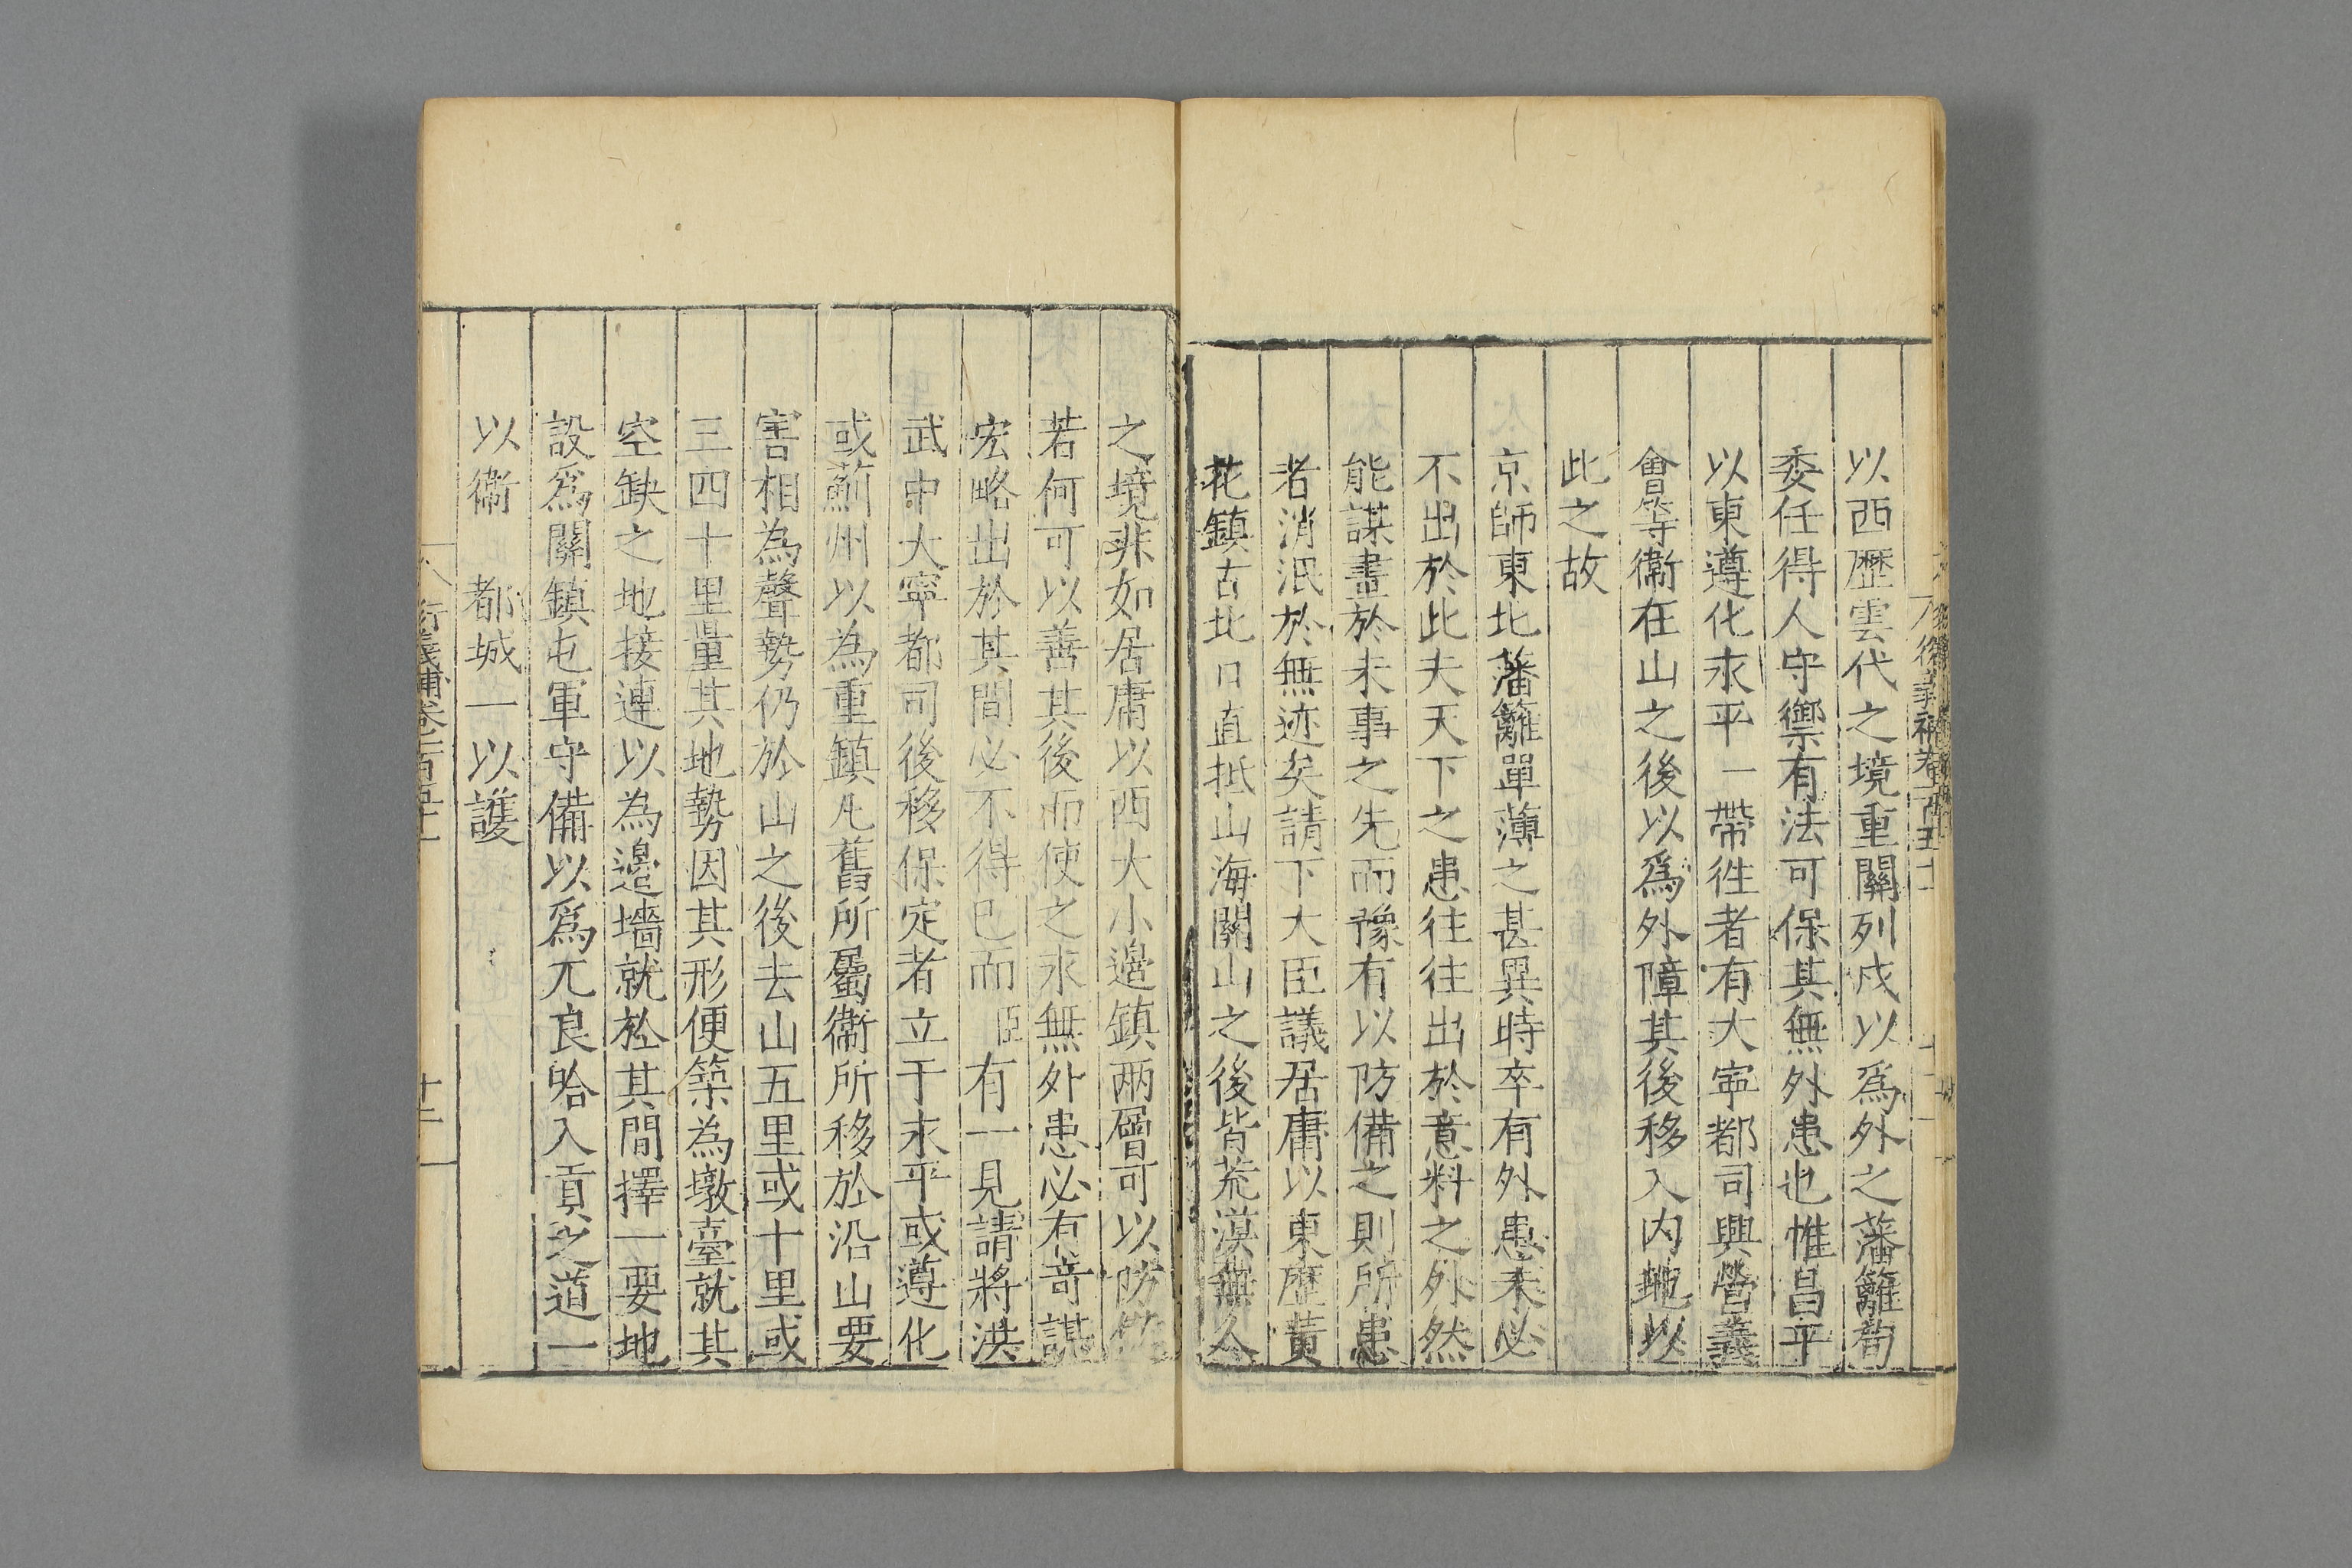 以西歷雲代之境重關列戍以爲外之藩籬荀
委任得人守禦有法可保其無外患也惟昌平
以東遵化永平一帶徃者有大寧都司興營義
會等衞在山之後以爲外障其後移入内地以
此之故
京師東北藩籬單薄之甚異時卒有外患未必
不出於此夫天下之患往往出於意料之外然
能謀畫於未事之先而豫有以防備之則所患
者消泯於無迹矣請下大臣議居庸以東歷黄
花鎮古北口直抵山海關山之後皆荒漠無人
之境非如居庸以西大小邊鎮兩層可以防
若何可以善其後而使之永無外患必有奇謀
宏略出於其間必不得已而臣有一見請將洪
武中大寧都司後移保定者立于永平或遵化
或薊州以為重鎮凡舊所屬衞所移於沿山要
害相為聲勢仍於山之後去山五里或十里或
三四十里量其地勢因其形便築為墩臺就其
空缺之地接連以為邊墻就於其間擇一要地
設爲關鎮屯軍守備以爲兀良哈入貢之道一
以衞 都城一以護
衍義補卷之一百五十一